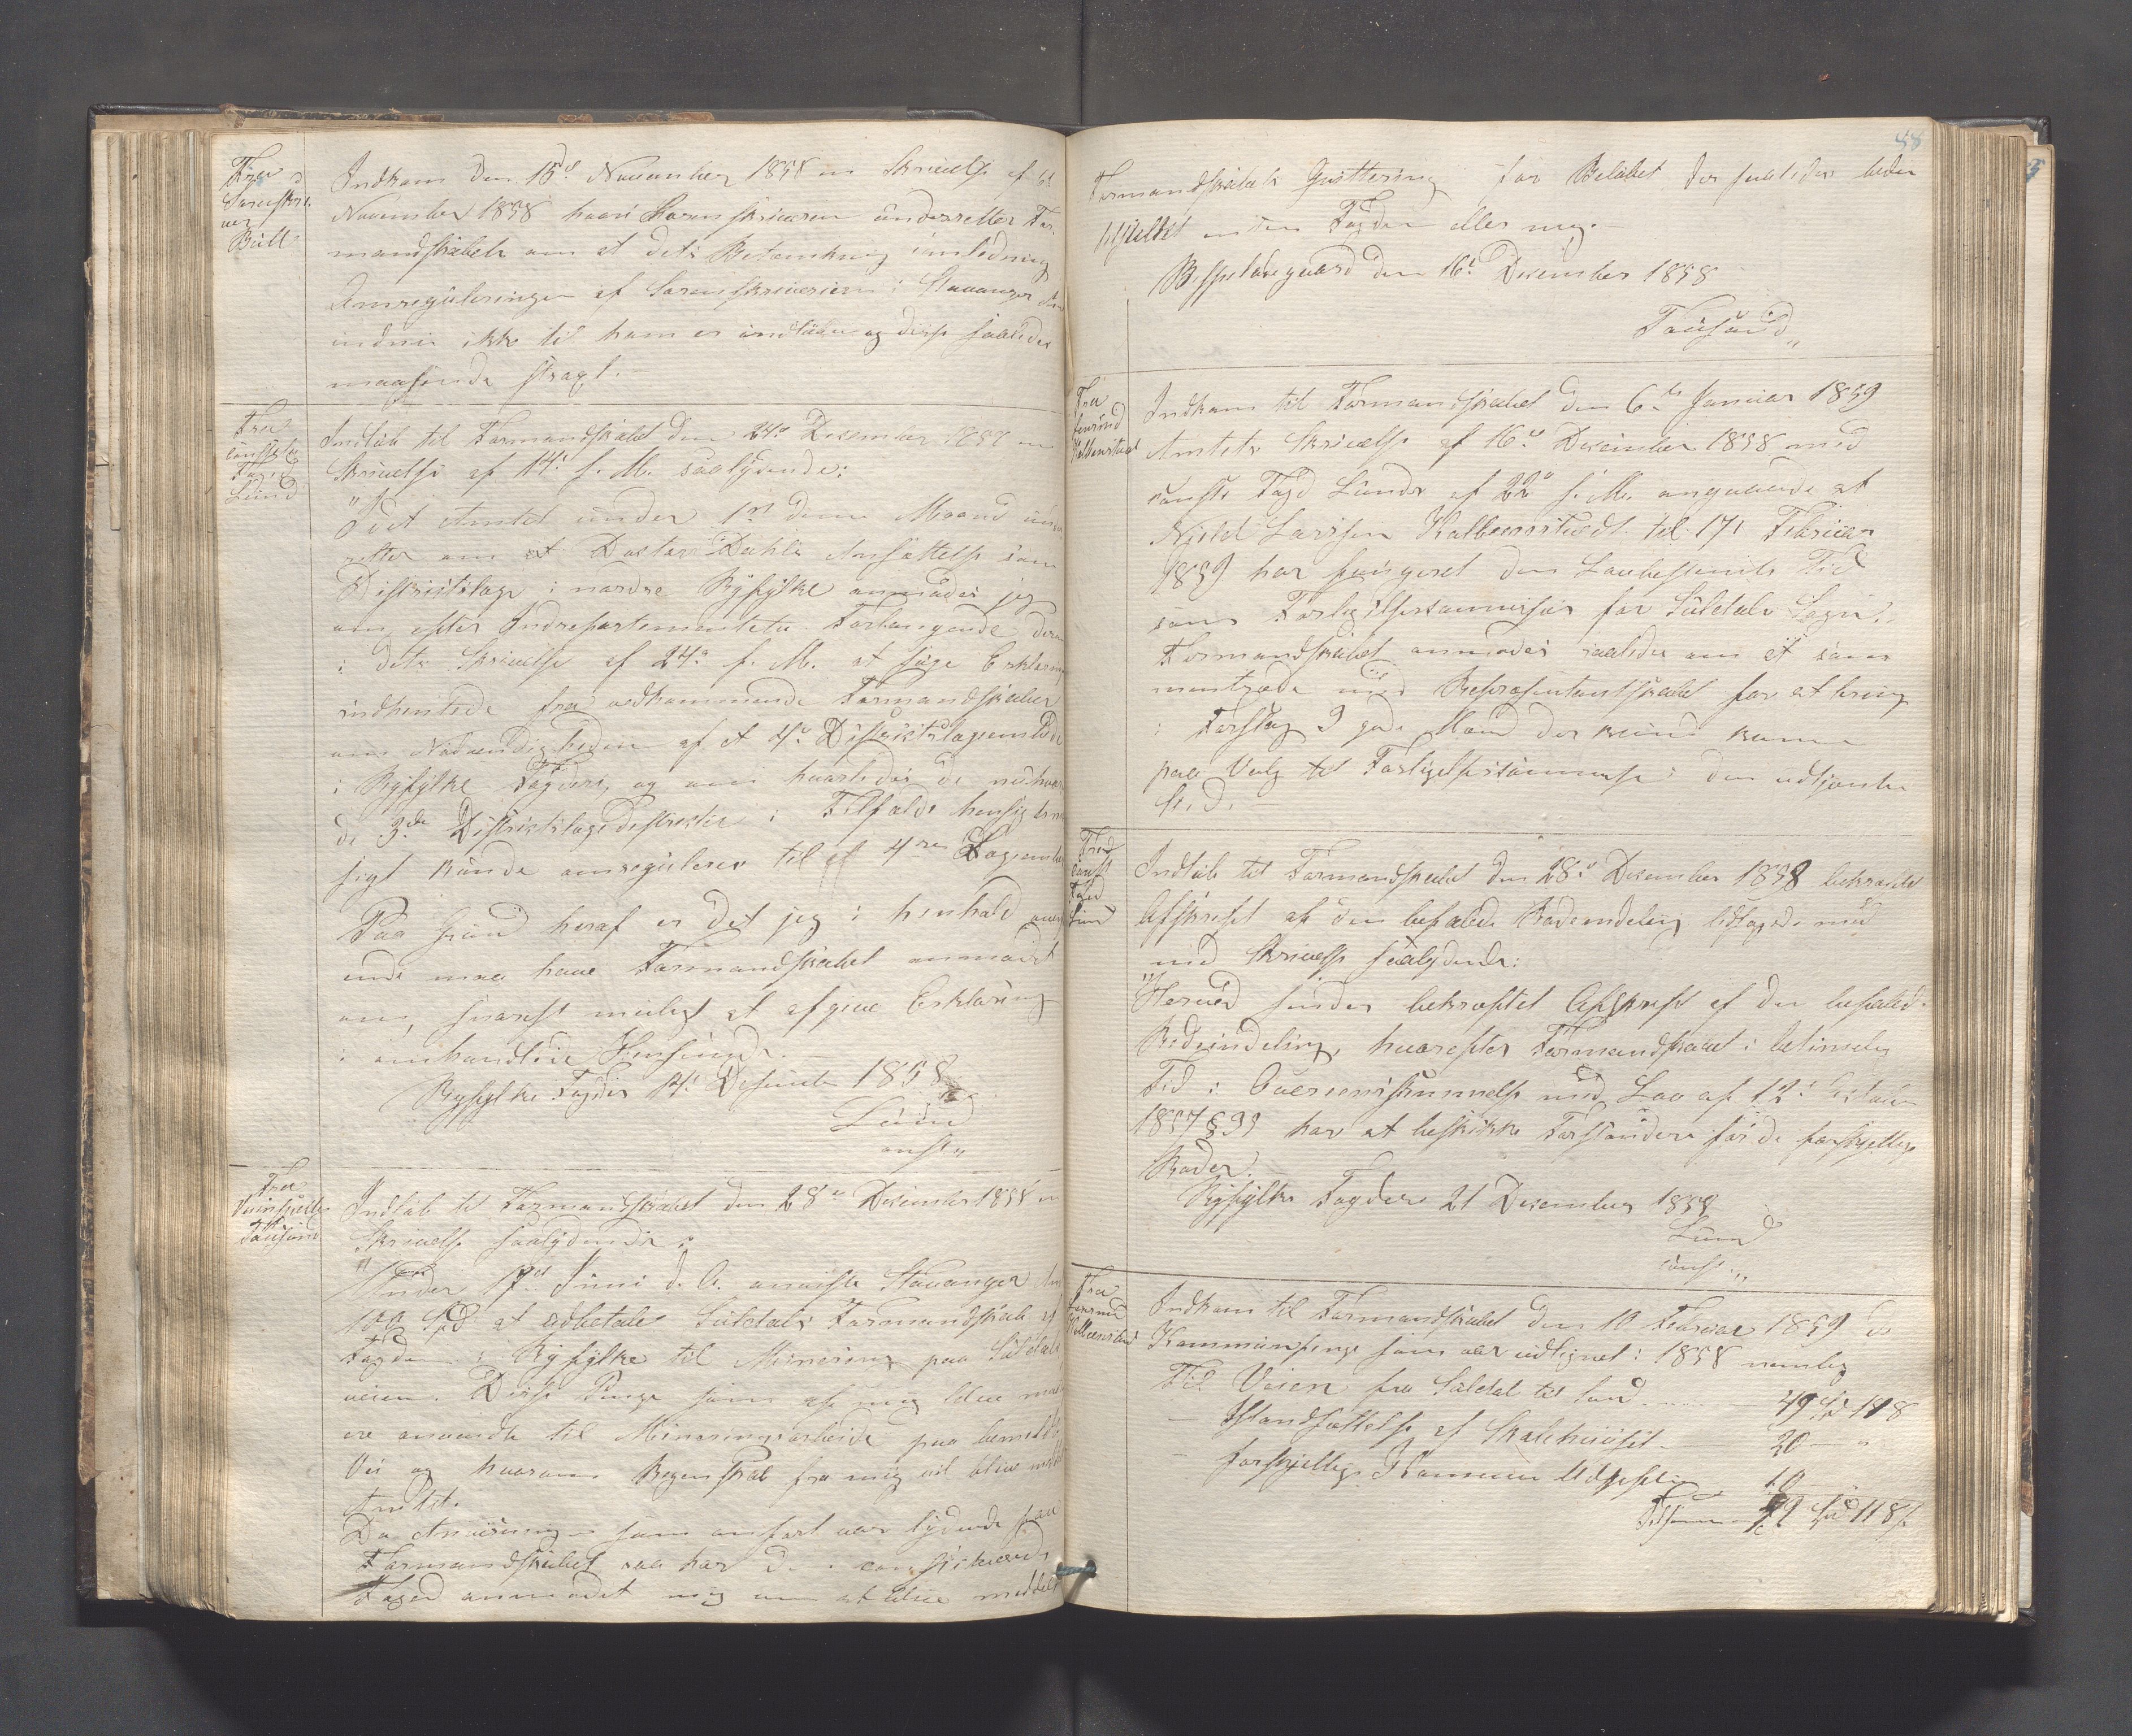 Fra
Sorenskri-
ver
Bull
Indkom den 15de November 1858 en Skrivelse af 6t
November 1858 hvori Sorenskriveren underretter For-
mandskabet om at dets Betænkning i Anledning
Omreguleringen af Sorenskriverien i Stavanger Amt
endnu ikke til ham er indløben og disse saaledes
maa sende strax.
Fra
const.
Foged
Lund
Indløb til Formandskabet den 24de Desember 1858 en
Skrivelse af 14de s. M. saalydende:
"I det Amtet under 1st denne Maaned under-
retter om at Doctor Dahls Ansættelse som
Distriktslæge i nordre Ryfylke anmodes jeg
om efter Indredepartementets Forlangende derom
i dets Skrivelse af 24de f. M. at søge Erklæring
indhentede fra vedkommende Formandskaber
om Nødvendigheden af et 4de Distriktslægeembede
i Ryfylke Fogderi, og om hvorledes de nuværende
de 3de Distriktslægedistrikter i Tilfælde hensigtsmæs-
sigt kunde omreguleres til et 4de Lægeembede
Paa Grund heraf er det jeg i Henhold
ende maa have Formandskabet anmodet
om, snarest muligt at afgive Erklæring
i omhandlede Henseende.
Ryfylke Fogderi 14de Desember 1858
Lund
const.
Fra
Tousund
Indløb til Formandskabet den 28de Desember 1858 en
Skrivelse saalydende:
"Under 17de Juni d. A. anviste Stavanger Amt
100 Spd at udbetale Suldals Formandskab af
Fogden i Ryfylke til Minering paa Suldals
veien. Disse Penge som af mig blev
ere anvendte til Mineringsarbeide paa bemeldte
Vei og hvorom Regenskab fra mig vil blive
Amtet.
Da Anvisningen som anført var lydende paa
Formandskabet saa har den constituerede
Foged anmodet mig om at blive meddelt
88
Formandskabets Quittering for Beløbet der saaledes bedes
tilstillet enten Fogden eller mig.
den 16de Desember 1858
Tousund
Fra
Lensmand
Kolbenstvedt
Indkom til Formandskabet den 6te Januar 1859
Amtets Skrivelse af 16de Desember 1858 med
const. Fogd Lunds af 22de s. M. angaaende at
Njeld Larssen Kolbenstvedt til 17de Februar
1859 har fungeret den Lovbestemte Tid
som Forligelsescommissær for Suldals Sogn.
Formandskabet anmodes saaledes om at sam-
mentræde med Repræsentantskabet for at bringe
i Forslag 3 gode Mænd der kunde komme
paa Valg til Forligelseskommissær i den udtjentes
Sted.
Fra
const
Foged
Lund
Indløb til Formandskabet den 28de Desember 1858 bekræftet
Afskrift af den befalede Rodeinddeling ledsaget med
med Skrivelse saalydende:
"Herved sendes bekræftet Afskrift af den befalede
Rodeinddeling, hvorefter Formandskabet i betimelig
Tid i Overensstemmelse med Lov af 12te October
1857 § 33 har at beskikke Forstandere for de forskjellige
Roder.
Ryfylke Fogderi 21 Desember 1858
Lund
const.
Fra
Lensmand
Kolbenstvedt
Indkom til Formandskabet den 10 Februar 1859 de
Kommunepenge som var udlignet i 1858 nemlig
Til Veien fra Suldal til Sand 49 Spd 118
- Istandsættelse af Skolehuset 20 - "
- forskjellige Kommune Udgifter 10
Tilsammen 79 Spd 118 s